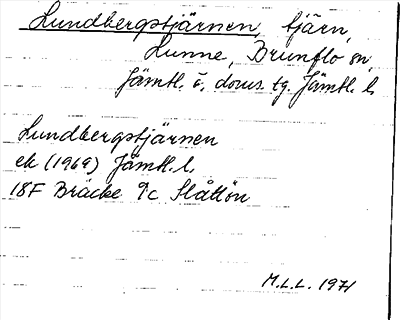 Lundbergstjärnen, tjärn,
Lunne, Brunflo sn,
Jämtl. ö. doms. tg. Jämtl. l.
Lundbergstjärnen
ek (1969) Jämtl. l.
18F Bräcke 9c Slåttön
M.L.L. 1971